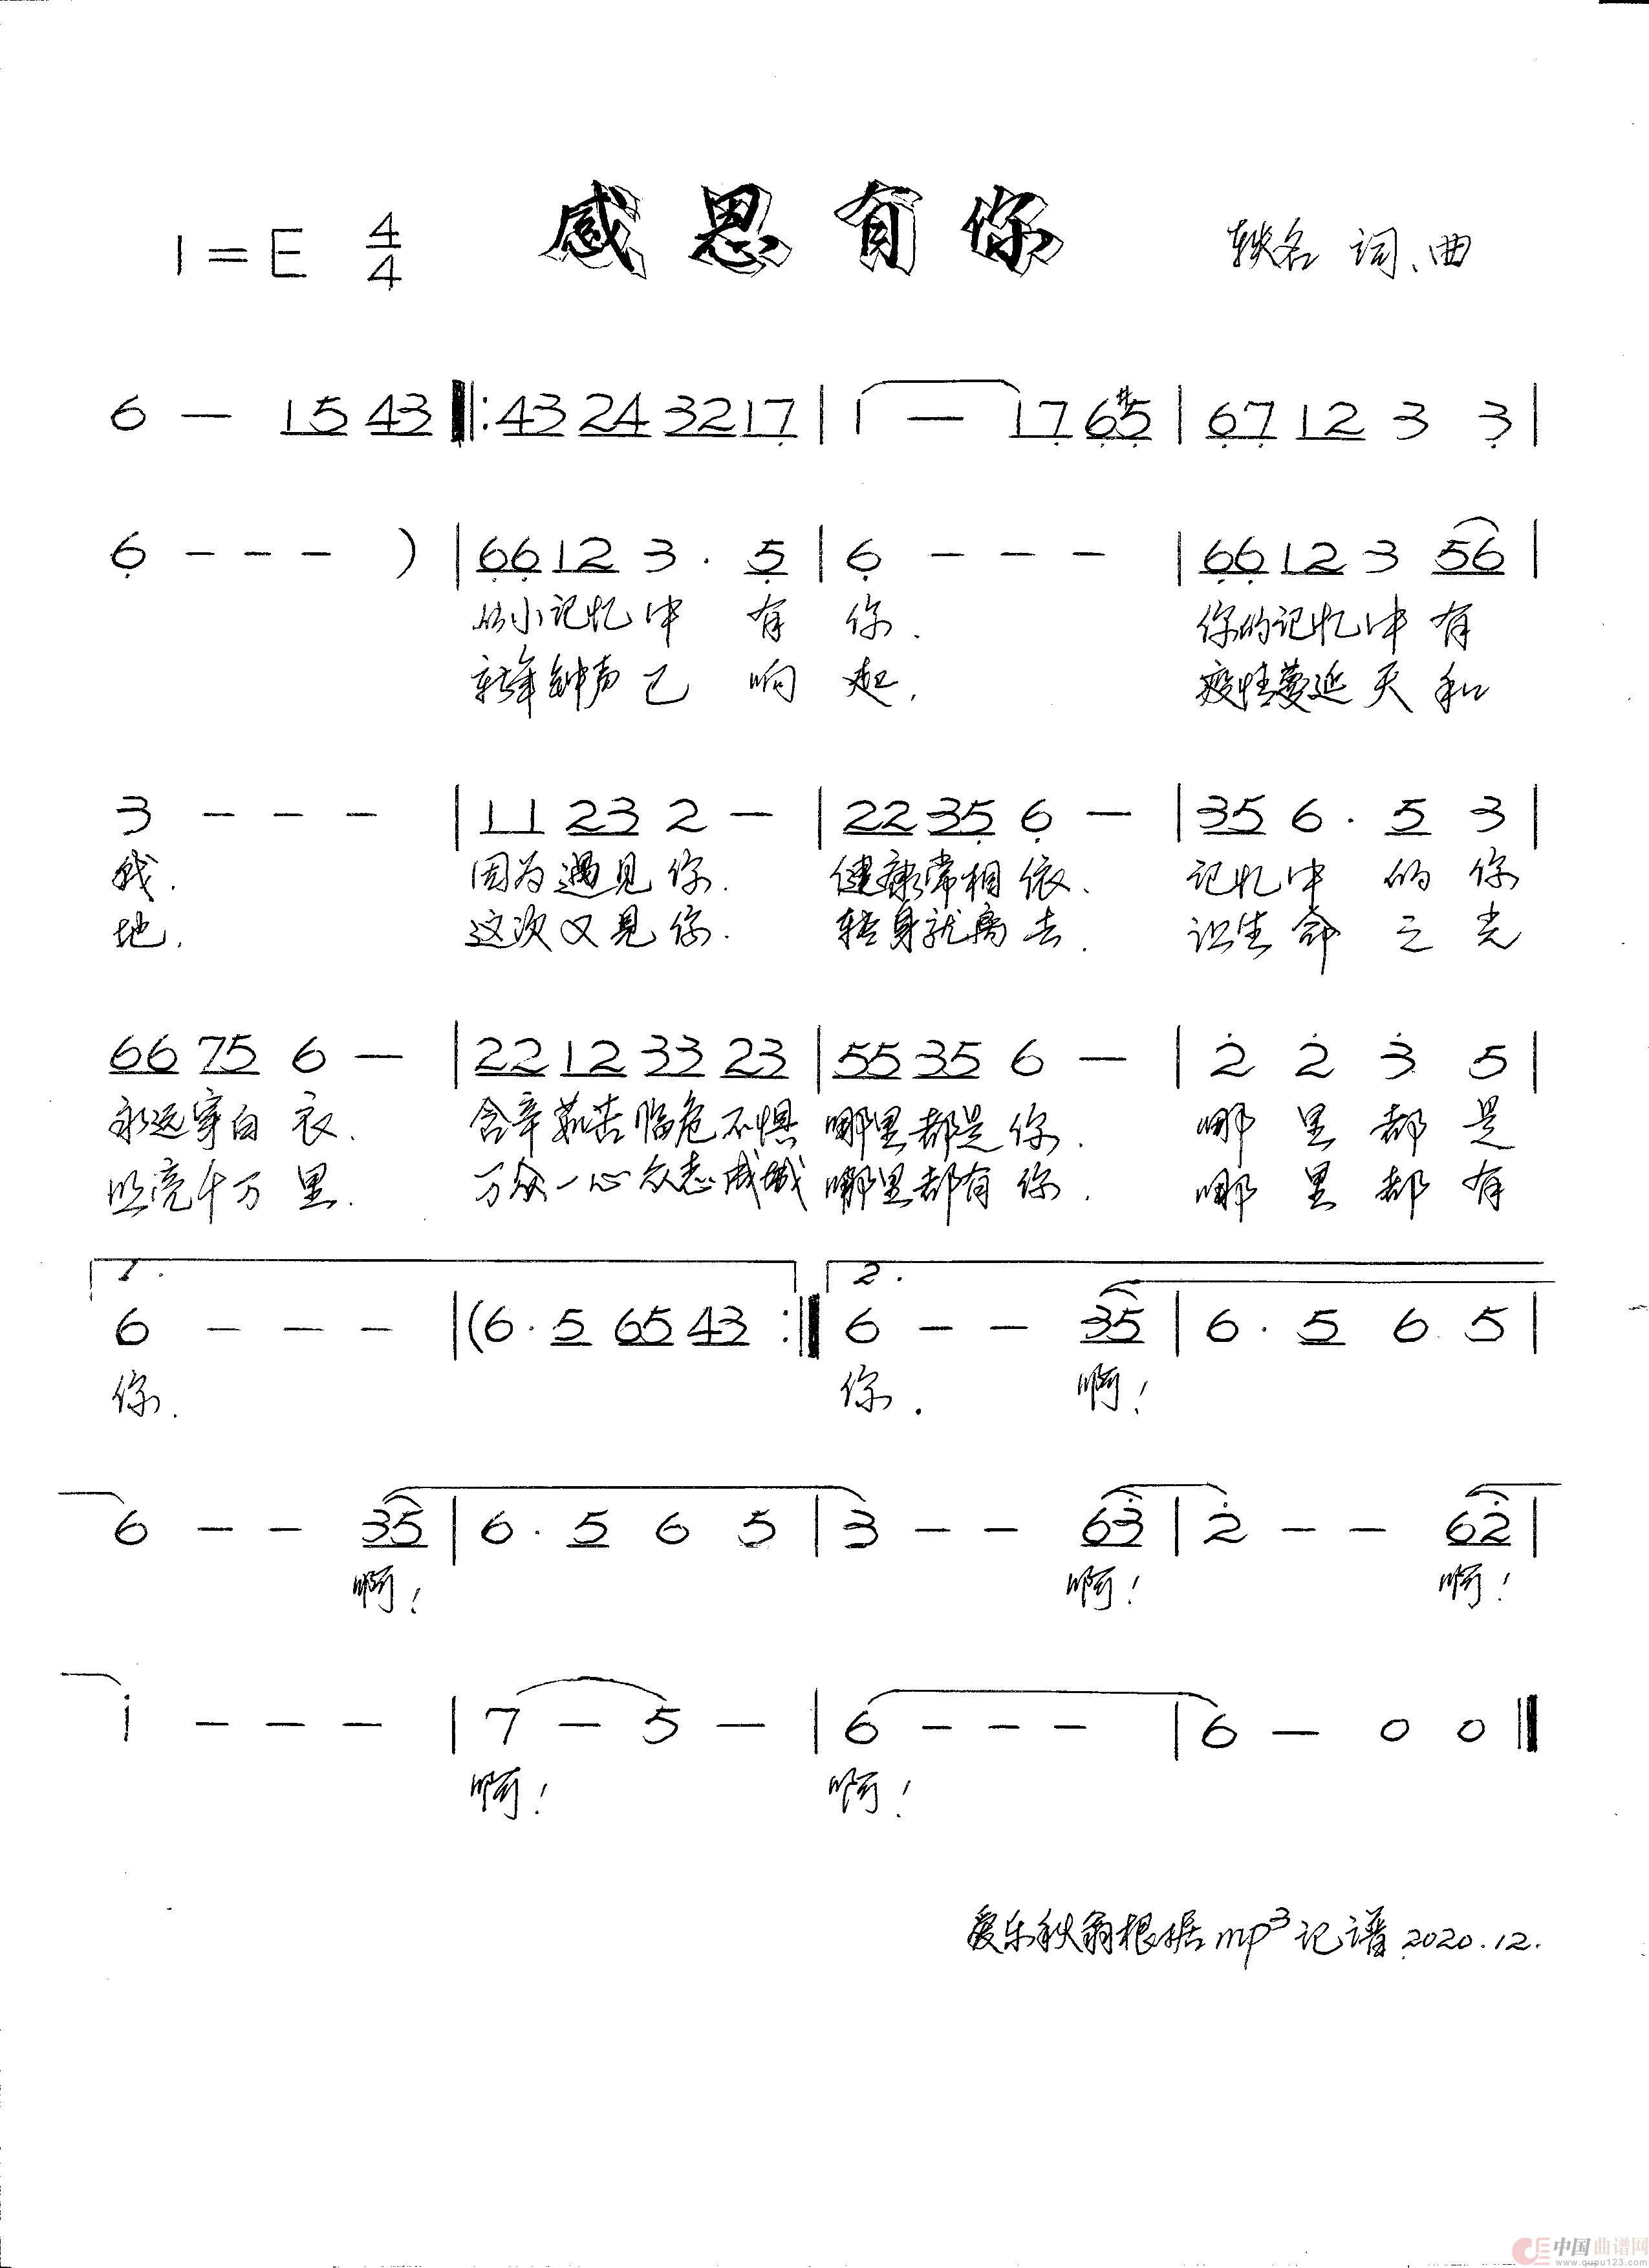 感恩有你
1=E 4/4
轶名 词、曲
6 — 15 43 ‖: 43 24 32 17 | 1 — 17 6#5 | 67 12 3 3 |
6 - - - ) | 66 12 3 . 5 | 6 - - - | 66 12 3 56 |
从小记忆中 有 你. 你的记忆中 有
新年钟声已 响 起. 疫情蔓延天 和
3 - - - | 11 23 2 — | 22 35 6 — | 35 6 . 5 3 |
我. 因为遇见你. 健康常相依. 记忆中 的 你
地. 这次又见你. 转身就离去. 识生命 之 光
66 75 6 — | 22 12 33 23 | 55 35 6 — | 2 2 3 5 |
永远穿白衣. 含辛茹苦临危不惧 哪里都是你. 哪 里 都 是
照亮千万里. 万众一心众志成城 哪里都有你. 哪 里 都 有
1. 2.
6 - - - | (6 . 5 65 43 :‖ 6 - - 35 | 6 . 5 6 5 |
你. 你. 啊!
6 - - 35 | 6 . 5 6 5 | 3 - - 63 | 2 - - 62 |
啊! 啊! 啊!
1 - - - | 7 - 5 - | 6 - - - | 6 — 0 0 ‖
啊! 啊!
爱乐秋翁根据mp3记谱 2020.12.
中国曲谱网
www.qupu123.com